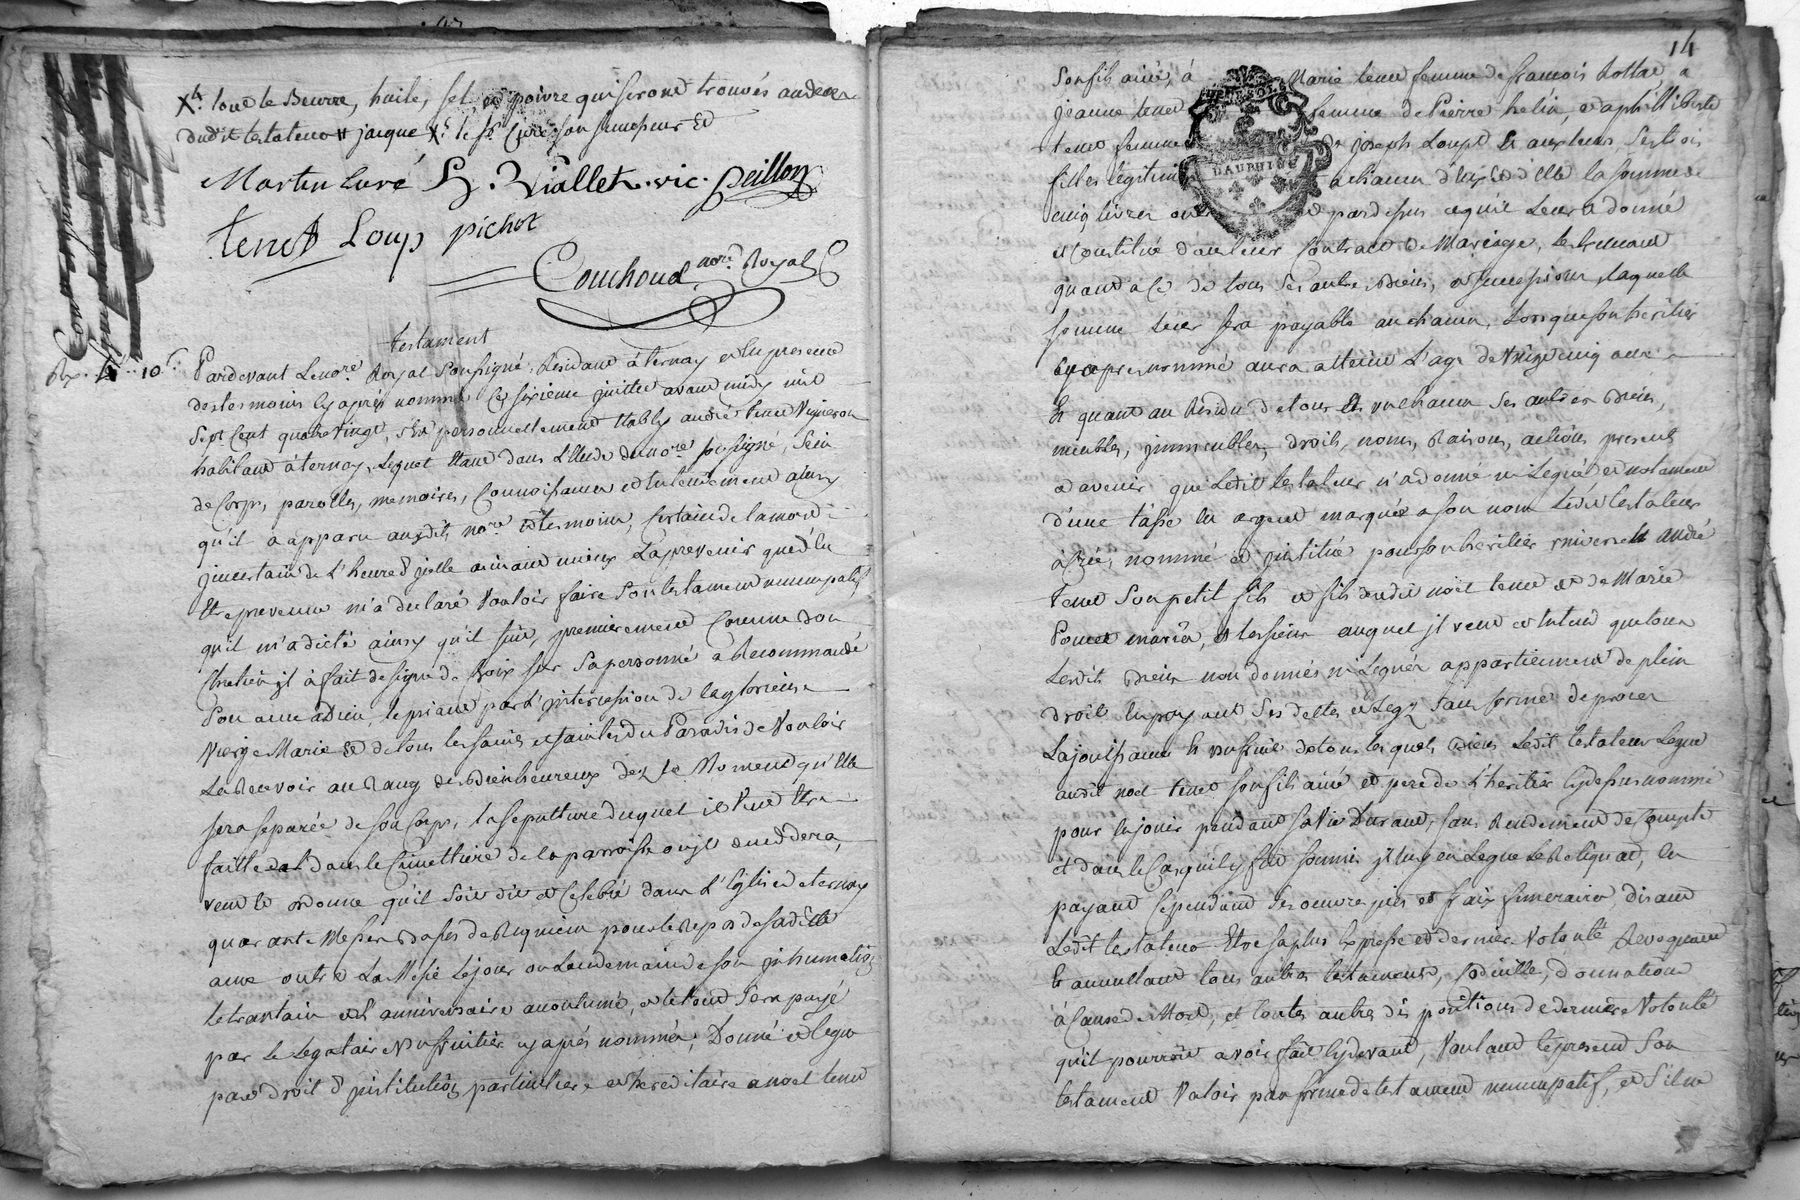 Xt. tout le Beurre, huile, sel, et poivre qui seront trouvés au decer
dudit testateur jacque Xt. le Sr. Curé son successeur Et
Martin curé H. Viallet. vic. Peillon
tenet Loup pichot
Couchoud nore. Royal
testament
Par devant Le nore. Royal soussigné, Residant à ternay et En presence
des tesmoins cy après nommé Ce sixieme juillet avant midy mil
sept Cent quatre vingt, s'Est personnellement Etably andré tenet Vigneron
habitant à ternay, Lequel Etant dans L'Etude du nore. soussigné, sein
de Corps, parolles, memoires, Connoissance et Entendement ainsy
qu'il a apparu auxdits nore. et tesmoins, Certain de la mort
jncertain de L'heure d'jcelle aimant mieux La prevenir que d'En
Etre prevenu m'a declaré Vouloir faire son testament nuncupatif
qu'il m'a dicté ainsy qu'il suit, premierement Comme bon
Chretien jl à fait le signe de Croix sur sa personne à Recommandé
son ame à Dieu, le priant par L'jntercession de la glorieuse
Vierge Marie et de tous les saints et saintes du Paradis de Vouloir
La Recevoir au Rang des Bienheureux des le Moment qu'Elle
sera separée de son Corps, la sepulture duquel il Veut Etre
faitte dans le Cimettiere de la parroisse ou jl decedera,
veut et ordonne qu'il soit dit et Celebré dans L'Eglise de ternay
quarante Messes Basses de Requiem pour le Repos de sadite
ame outre La Messe Le jour ou Lendemain de son jnhumation
le trantain et L'anniversaire acoutumé, et le tout sera payé
par le Legataire Usufruitier cy après nommé, Donne et legue
par droit d'jnstitution particuliere et hereditaire a noel tenet
14
Son fils ainé, à Marie tenet femme de francois Rottat a
jeanne tenet femme de Pierre hélin, et a philliberte
tenet femme de joseph Loup Et aux leurs ses trois
filles légitimes a chacun d'eux et d'Elle la somme de
cinq livres outre et par dessus ce qu'il Leur a donné
et Constitué dans leur Contract de Mariage, les privant
quand a Ce de tous ses autres Biens, et succession, Laquelle
somme Leur sera payable a un chacun, Lorsque son heritier
cy apres nommé aura atteint L'age de Vingt cinq ans
Et quant au Residu de tous Et un chacun ses autres Biens,
meubles, jmmeubles, droits, noms, Raisons, actions presents
et avenir que Ledit testateur n'a donné ni Legué et notament
d'une tasse En argent marquée a son nom Ledit testateur
à Créé, nommé et jnstitué pour son heritier universel André
tenet son petit fils et fils dudit noel tenet et de Marie
Poncet mariés, tessieur auquel jl veut et Entend que tous
Lesdits Biens non donnés ni Legués appartiennent de plein
droit En payant ses dettes et Legs sans forme de procés
La jouissance Et usufruit de tous lesquels Biens Ledit testateur Legue
audit noel tenet son fils ainé et pere de L'heritier cy dessus nommé
pour En jouir pendant sa Vie Durant, sans Rendement de Compte
et dans le Cas qu'il y fut soumis jl luy en Legue Le Reliquat, En
payant Cependant ses oeuvres pies et fraix funeraires, disant
Ledit testateur Etre sa plus Expresse et derniere Volonté Revoquant
Et annullant tous autres testaments, Codicille, donnation
à Cause de Mort, et toutes autres dispositions de derniere Volonté
qu'il pourroit avoir fait cy devant, Voulant le present son
testament Valoir par forme de testament nuncupatif, et s'il ne
DAUPHINÉ